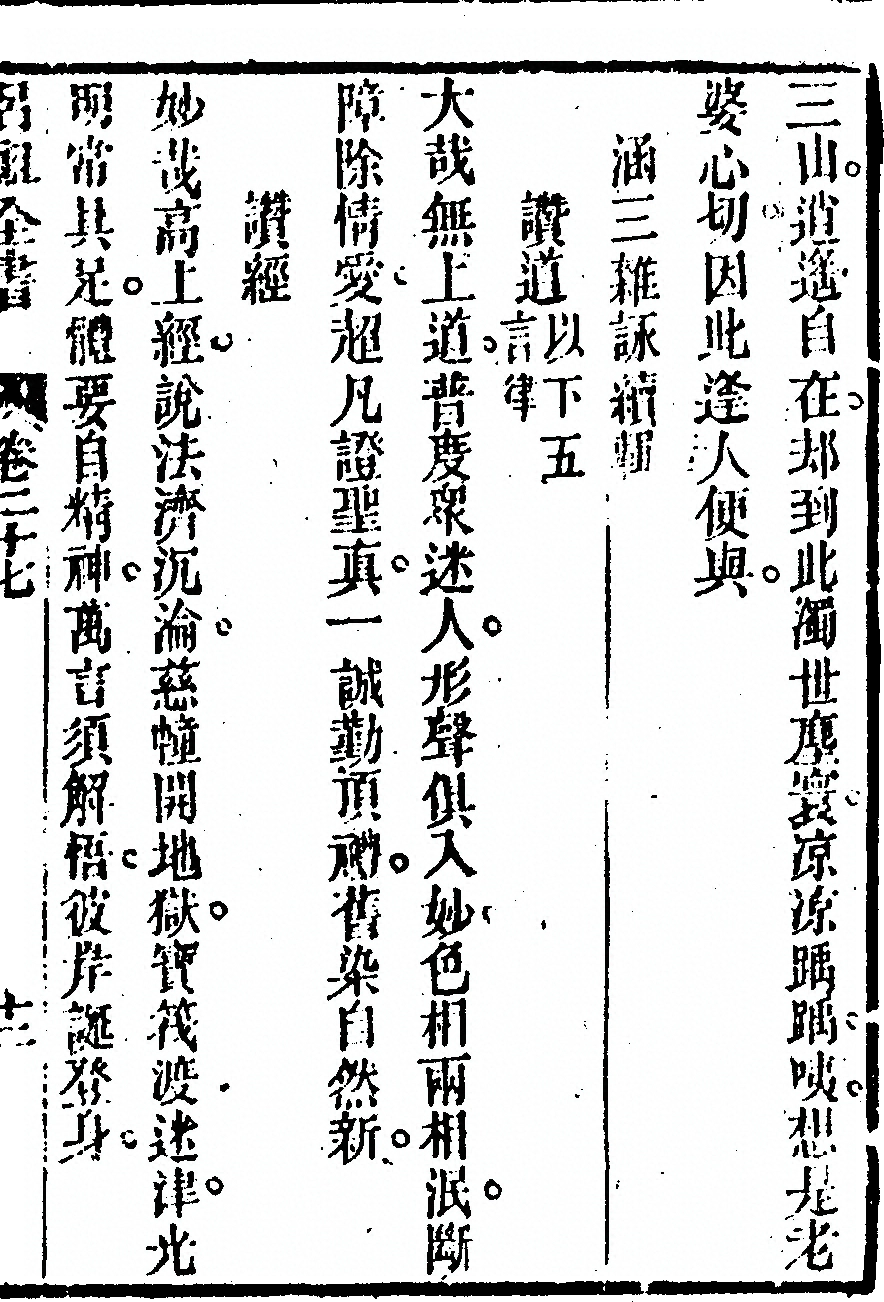 三山逍遙自在却到此濁世塵寰凉凉踽踽咦想是老
婆心切因此逢人便與
涵三雜詠續輯
讚道以下五言律
大哉無上道普度衆迷人形聲俱入妙色相兩相泯斷
障除情愛超凡證聖真一誠勤頂禮舊染自然新
讚經
妙哉高上經說法濟沉淪慈幢開地獄寶筏渡迷津光
明常具足體要自精神萬言須解悟彼岸誕登身
呂祖全書 卷二十七 十二